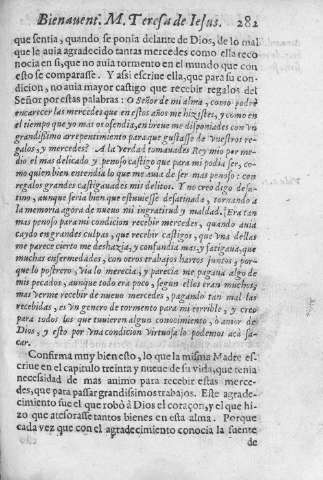 Bienauent. M. Teresa de Iesus. 282
que sentia, quando se ponia delante de Dios, de lo mal
que le auia agradecido tantas mercedes como ella reco
nocia en si, que no auia tormento en el mundo que con
esto se comparasse. Y assi escriue ella, que para su con-
dicion, no auia mayor castigo que recebir regalos del
Señor por estas palabras: O Señor de mi alma, como podrè
encarecer las mercedes que en estos años me hizistes, y como en
el tiempo que yo mas os ofendia, en breue me disponiades con vn
grandissimo arrepentimiento para que gustasse de vuestros re-
galos, y mercedes? A la verdad tomauades Rey mio por me-
dio el mas delicado y penoso castigo que para mi podia ser, co-
mo quien bien entendia lo que me auia de ser mas penoso: con
regalos grandes castigauades mis delitos. Y no creo digo desa-
tino, aunque seria bien que estuuiesse desatinada, tornando a
la memoria agora de nueuo mi ingratitud y maldad. Era tan
mas penoso para mi condicion recebir mercedes, quando auia
caydo en grandes culpas, que recebir castigos, que vna dellas
me parece cierto me deshazia, y confundia mas y fatigaua, que
muchas enfermedades, con otros trabajos hartos juntos, por-
que lo postrero, via lo merecia, y parecia me pagaua algo de
mis pecados, aunque todo era poco, segun ellos eran muchos,
mas verme recebir de nueuo mercedes, pagando tan mal las
recebidas, es vn genero de tormento para mi terrible, y creo
para todos los que tuuieren algun conocimiento, ò amor de
Dios, y esto por vna condicion virtuosa lo podemos acà sa-
car.
Confirma muy bien esto, lo que la misma Madre es-
criue en el capitulo treinta y nueue de su vida, que tenia
necessidad de mas animo para recebir estas merce-
des, que para passar grandissimos trabajos. Este agrade-
cimiento fue el que robò à Dios el coraçon, y el que hi-
zo que atesorasse tantos bienes en esta alma. Porque
cada vez que con el agradecimiento conocia la fuente
de